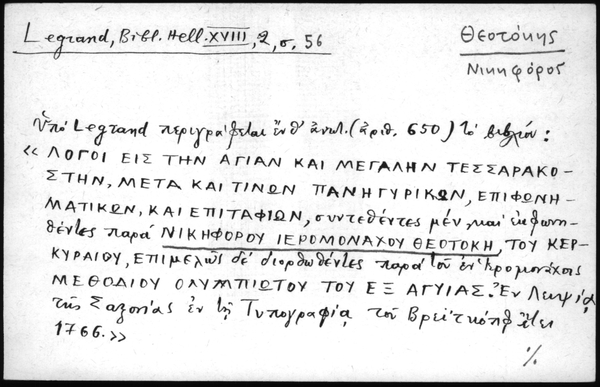 Legrand, Bibl. Hell. XVIII, 2, σ. 56
Θεοτόκης
Νικηφόρος
Ὑπὸ Legrand περιγράφεται ἔνθ' ἀνωτ. (ἀριθ. 650) τὸ βιβλίον:
« ΛΟΓΟΙ ΕΙΣ ΤΗΝ ΑΓΙΑΝ ΚΑΙ ΜΕΓΑΛΗΝ ΤΕΣΣΑΡΑΚΟ-
ΣΤΗΝ, ΜΕΤΑ ΚΑΙ ΤΙΝΩΝ ΠΑΝΗΓΥΡΙΚΩΝ, ΕΠΙΦΩΝΗ-
ΜΑΤΙΚΩΝ, ΚΑΙ ΕΠΙΤΑΦΙΩΝ, συντεθέντες μὲν καὶ ἐκφωνη-
θέντες παρὰ ΝΙΚΗΦΟΡΟΥ ΙΕΡΟΜΟΝΑΧΟΥ ΘΕΟΤΟΚΗ, ΤΟΥ ΚΕΡ-
ΚΥΡΑΙΟΥ, ΕΠΙΜΕΛῶς δὲ διορθωθέντες παρὰ τοῦ ἐν
ΜΕΘΟΔΙΟΥ ΟΛΥΜΠΙΩΤΟΥ ΤΟΥ ΕΞ ΑΓΥΙΑΣ. Ἐν Λειψίᾳ
τῆς Σαξονίας ἐν τῇ Τυπογραφίᾳ τοῦ Βρεϊτκὸπφ ἔτει
1766. »
./.